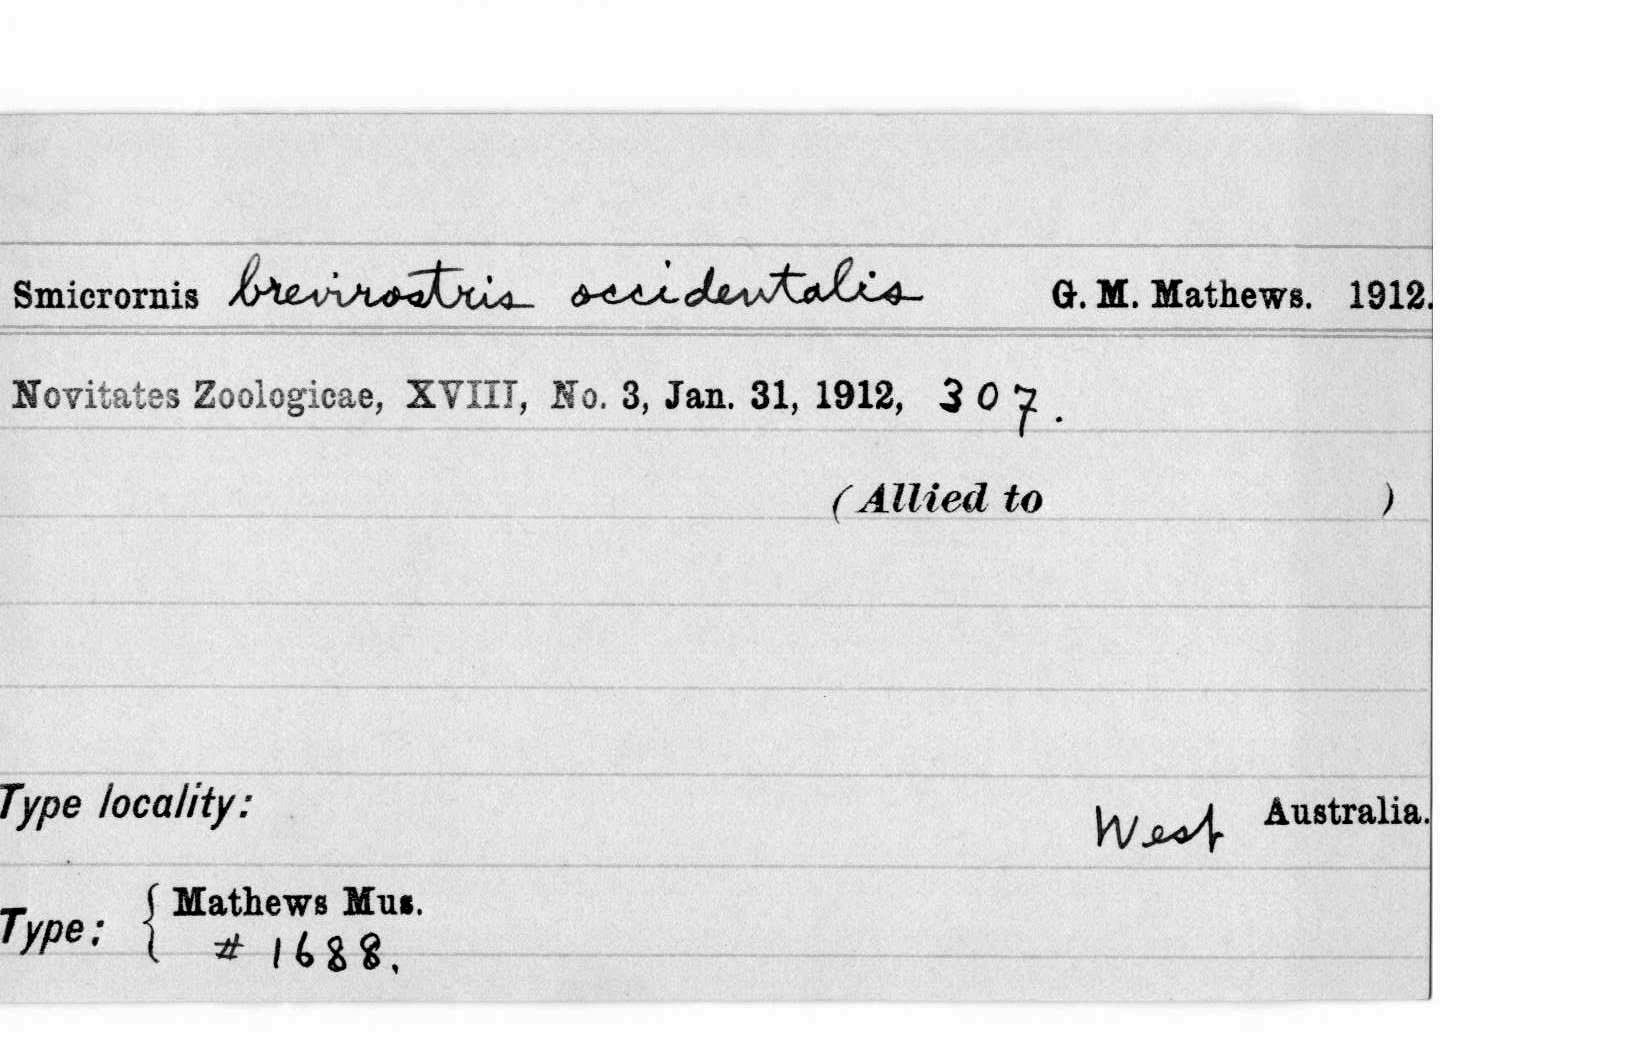 Smicrornis brevirostris occidentalis G. M. Mathews. 1912.
Novitates Zoologicae, XVIII, No. 3, Jan. 31, 1912, 307.
(Allied to )
Type locality: West Australia.
Type: { Mathews Mus.
# 1688.